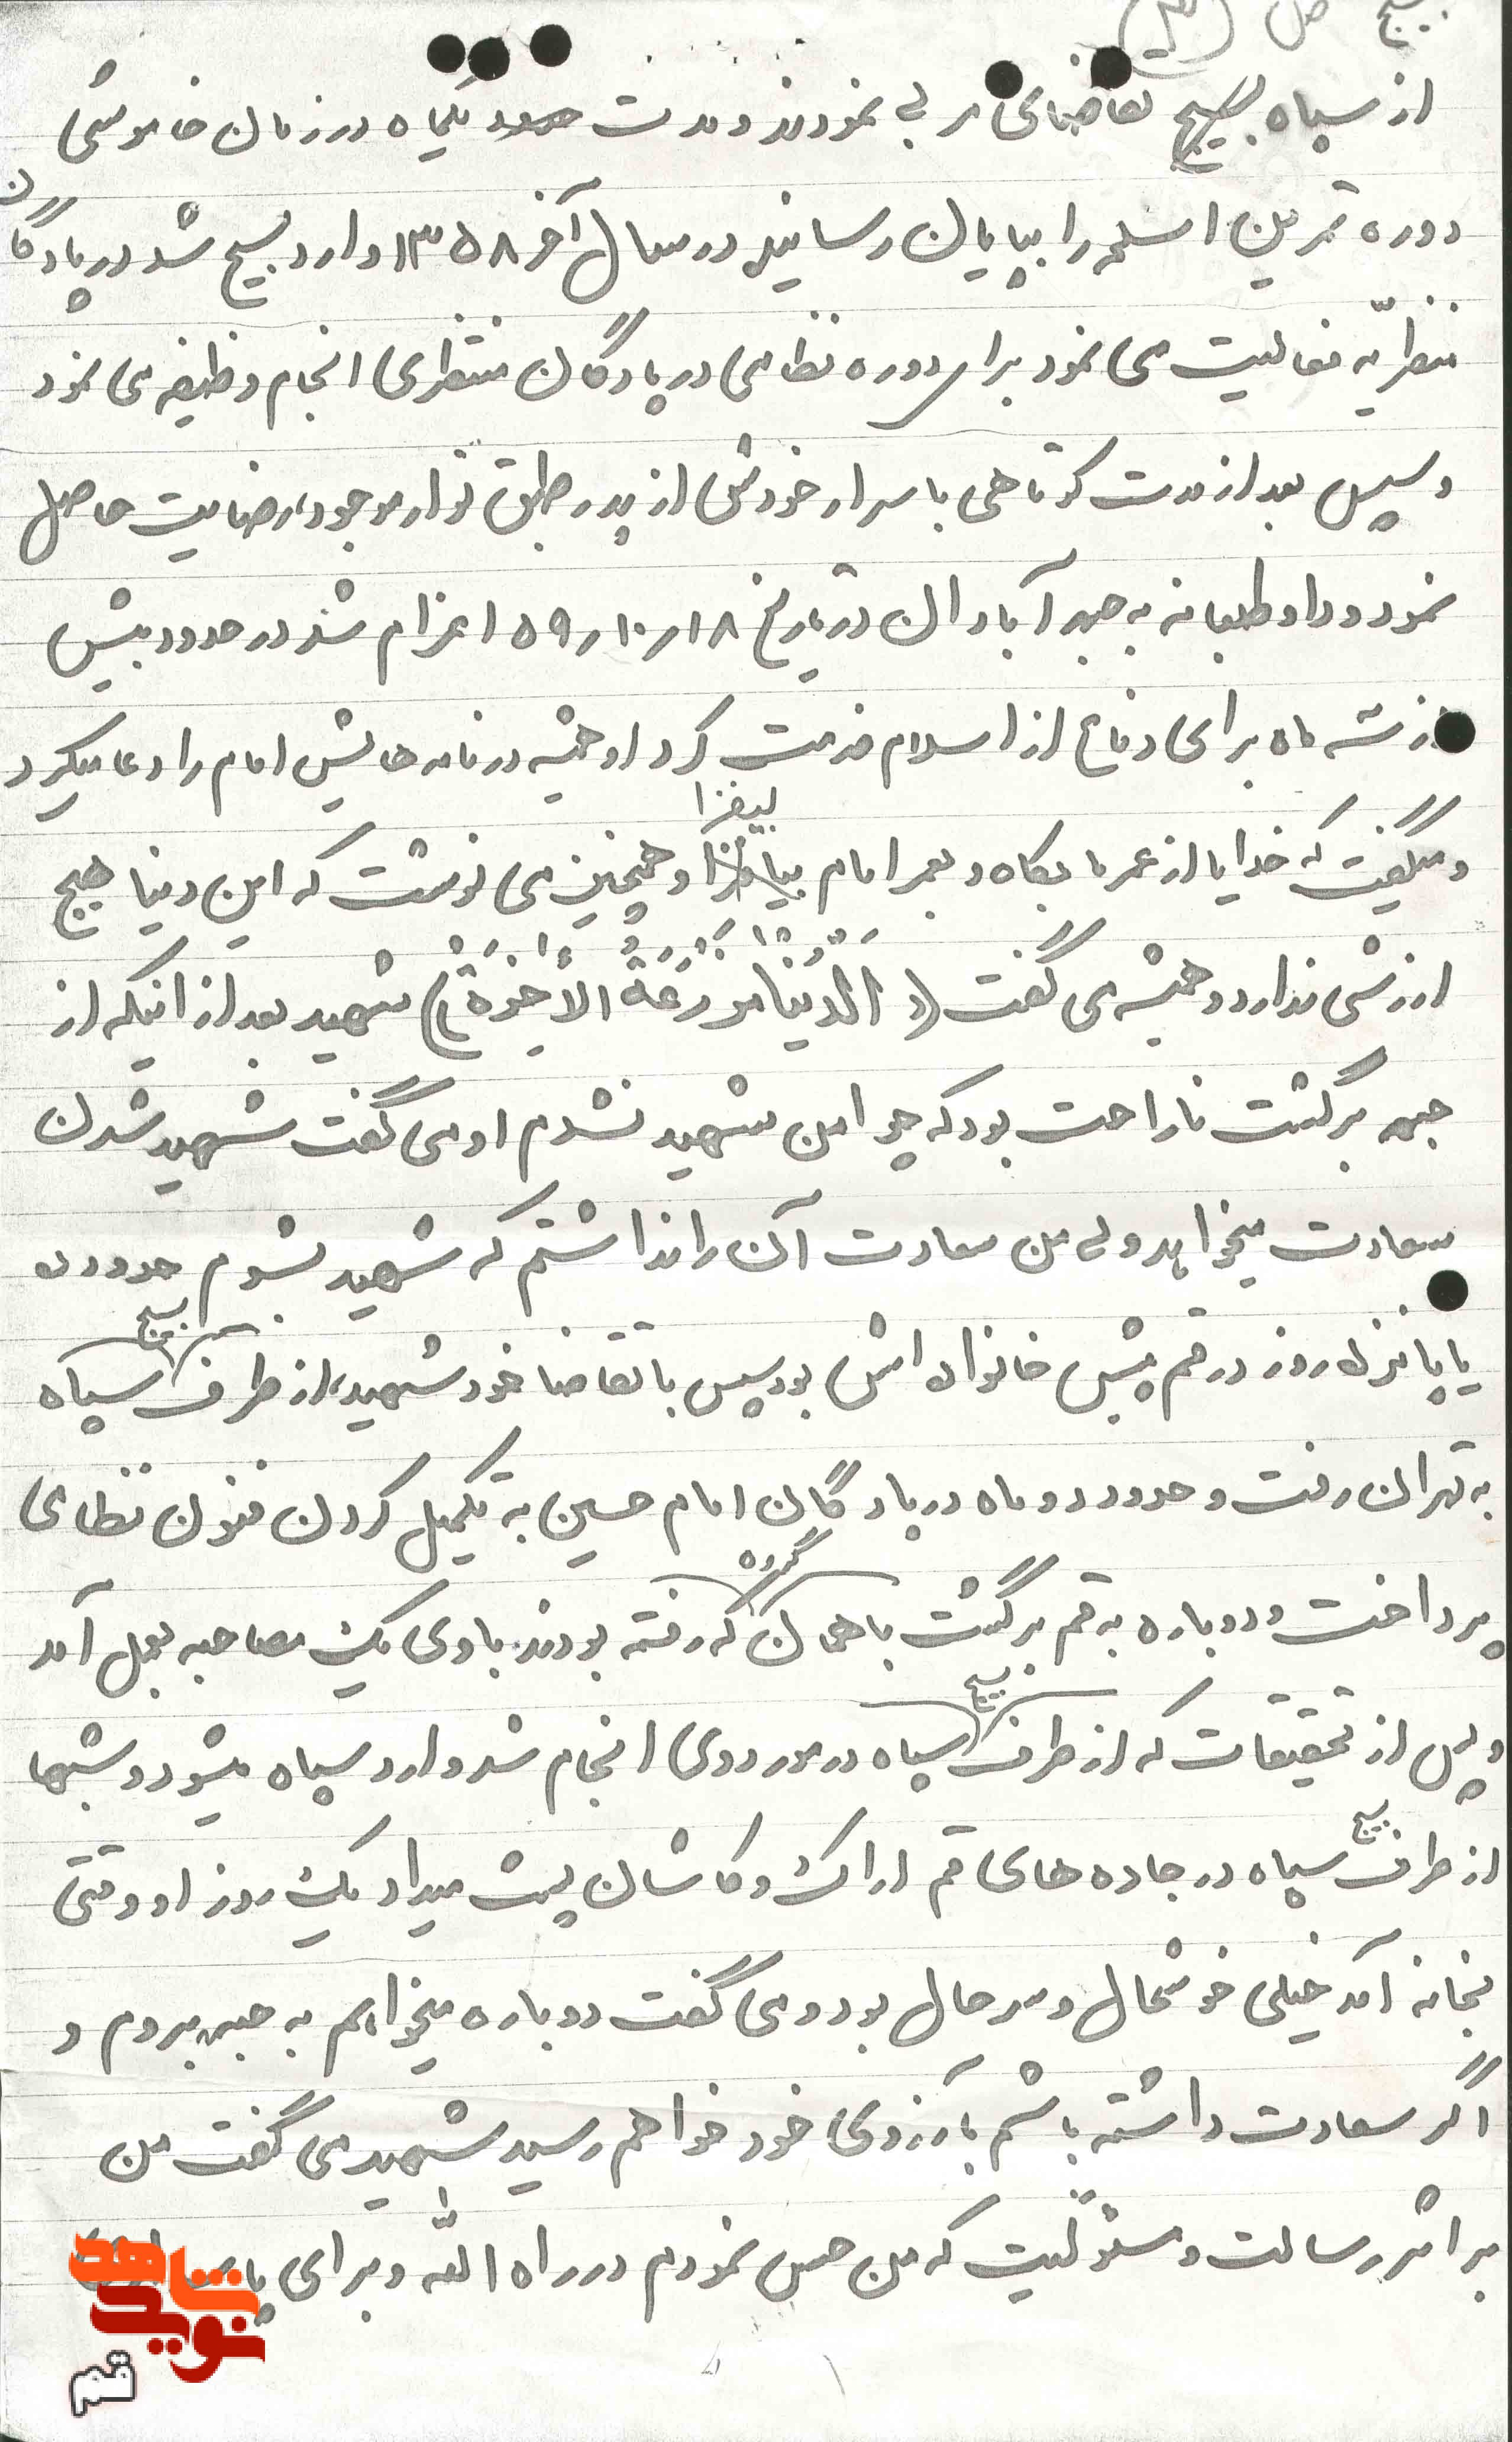 بسیج
از سپاه بسیج تقاضای مربی نمودند و مدت حدود یکماه در زمان خاموشی
دوره تمرین اسلحه را بپایان رسانید در سال آخر ۱۳۵۸ وارد بسیج شد در پادگان
منظریّه فعالیت می نمود برای دوره نظامی در پادگان منتظری انجام وظیفه می نمود
و سپس بعد از مدت کوتاهی با اسرار خودش از پدر طبق نوار موجود، رضایت حاصل
نمود و داوطلبانه به جبهه آبادان در تاریخ ۱۸ر۱۰ر۵۹ اعزام شد در حدود بیش
از سه ماه برای دفاع از اسلام خدمت کرد او همیشه در نامه هایش امام را دعا میکرد
و میگفت که خدایا از عمر ما بکاه و بعمر امام بیفزا و همچنین می نوشت که این دنیا هیچ
ارزشی ندارد و همیشه می گفت (( اَلدُّنْیٰا مَزْرَعَةُ الْأٰخِرَةْ )) شهید بعد از اینکه از
جبهه برگشت ناراحت بود که چرا من شهید نشدم او می گفت شهید شدن
سعادت میخواهد ولی من سعادت آن را نداشتم که شهید بشوم حدود ده
یا پانزده روز در قم پیش خانواده اش بود سپس با تقاضا خود شهید، از طرف بسیج سپاه
به تهران رفت و حدود دو ماه در پادگان امام حسین به تکمیل کردن فنون نظامی
پرداخت و دوباره به قم برگشت با همان گروه که رفته بودند با وی یک مصاحبه بعمل آمد
و پس از تحقیقات که از طرف بسیج سپاه در مورد وی انجام شد وارد سپاه میشود و شبها
از طرف بسیج سپاه در جاده های قم اراک و کاشان پست میداد یک روز او وقتی
بخانه آمد خیلی خوشحال و سرحال بود و می گفت دوباره میخواهم به جبهه بروم و
اگر سعادت داشته باشم بآرزوی خود خواهم رسید شهید می گفت من
بر اثر رسالت و مسئولیت که من حس نمودم در راه الله و برای
نوید شاهد
قم